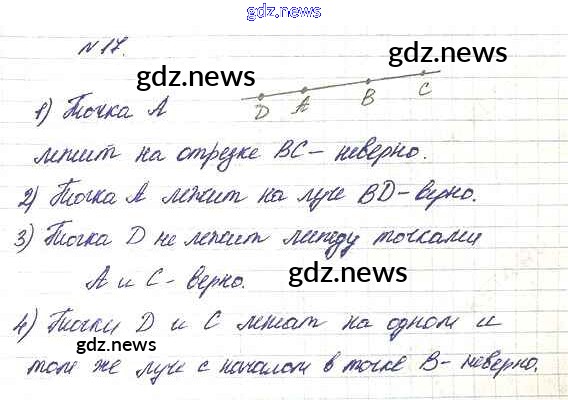 gdz.news
№17.
gdz.news
gdz.news
D A B C
1) Точка А
лежит на отрезке BC - неверно.
2) Точка А лежит на луче BD - верно.
3) Точка D не лежит между точками
A и C - верно.
gdz.news
4) Точки D и C лежат на одном и
gdz.news
том же луче с началом в точке B - неверно.